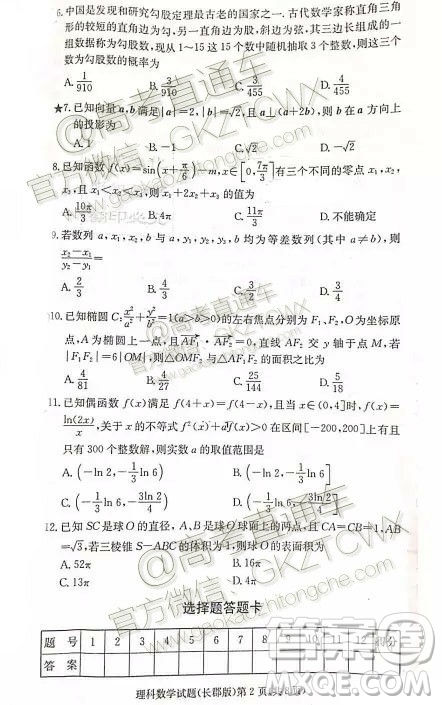 6.中国是发现和研究勾股定理最古老的国家之一.古代数学家称直角三角
形的较短的直角边为勾、另一直角边为股、斜边为弦,其三边长组成的一
组数据称为勾股数,现从1~15这15个数中随机抽取3个整数,则这三个
数为勾股数的概率为
A.1/910 B.3/910 C.3/455 D.4/455
★7.已知向量a,b满足|a|=2,|b|=√2,且a⊥(a+2b),则b在a方向上
的投影为
A.1 B.-1 C.√2 D.-√2
8.已知函数f(x)=sin(x+π/6)-m,x∈[0,7π/3]有三个不同的零点x₁,x₂,
x₃,且x₁<x₂<x₃,则x₁+2x₂+x₃的值为
A.10π/3 B.4π C.11π/3 D.不能确定
9.若数列a,x₁,x₂,b与a,y₁,y₂,y₃,b均为等差数列(其中a≠b),则
(x₂-x₁)/(y₂-y₁)=
A.2/3 B.4/3 C.3/2 D.3/4
10.已知椭圆C:x²/a²+y²/b²=1(a>b>0)的左右焦点分别为F₁、F₂,O为坐标原
点,A为椭圆上一点,且AF₁·AF₂=0,直线AF₂交y轴于点M,若
|F₁F₂|=6|OM|,则△OMF₂与△AF₁F₂的面积之比为
A.4/81 B.4/27 C.25/144 D.5/18
11.已知偶函数f(x)满足f(4+x)=f(4-x),且当x∈(0,4]时,f(x)=
ln(2x)/x,关于x的不等式f²(x)+af(x)>0在区间[-200,200]上有且
只有300个整数解,则实数a的取值范围是
A.(-ln 2,-1/3 ln 6) B.(-ln 2,-1/3 ln 6]
C.(-1/3 ln 6,-3ln 2/4) D.(-1/3 ln 6,-3ln 2/4]
12.已知SC是球O的直径,A,B是球O球面上的两点,且CA=CB=1,AB
=√3,若三棱锥S-ABC的体积为1,则球O的表面积为
A.52π B.16π
C.13π D.4π
选择题答题卡
题 号 1 2 3 4 5 6 7 8 9 10 11 12 得分
答 案
理科数学试题(长郡版)第2页
@高考直通车
官方微信:GKZTCWX
www.gaokaozhitongche.com